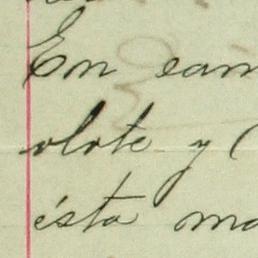 En cam
olote y
ésta ma